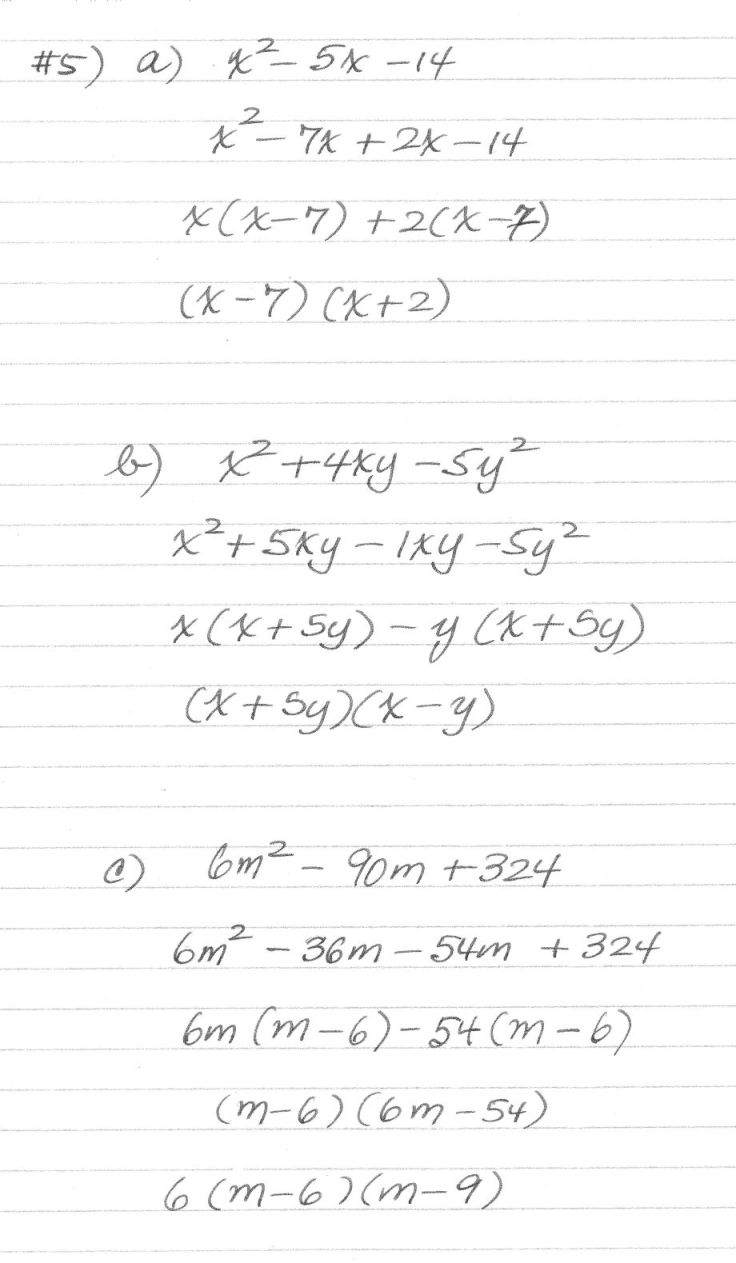 #5) a) x² - 5x - 14
x² - 7x + 2x - 14
x(x-7) + 2(x-7)
(x-7)(x+2)
b) x² + 4xy - 5y²
x² + 5xy - 1xy - 5y²
x(x+5y) - y(x+5y)
(x+5y)(x-y)
c) 6m² - 90m + 324
6m² - 36m - 54m + 324
6m(m-6) - 54(m-6)
(m-6)(6m-54)
6(m-6)(m-9)